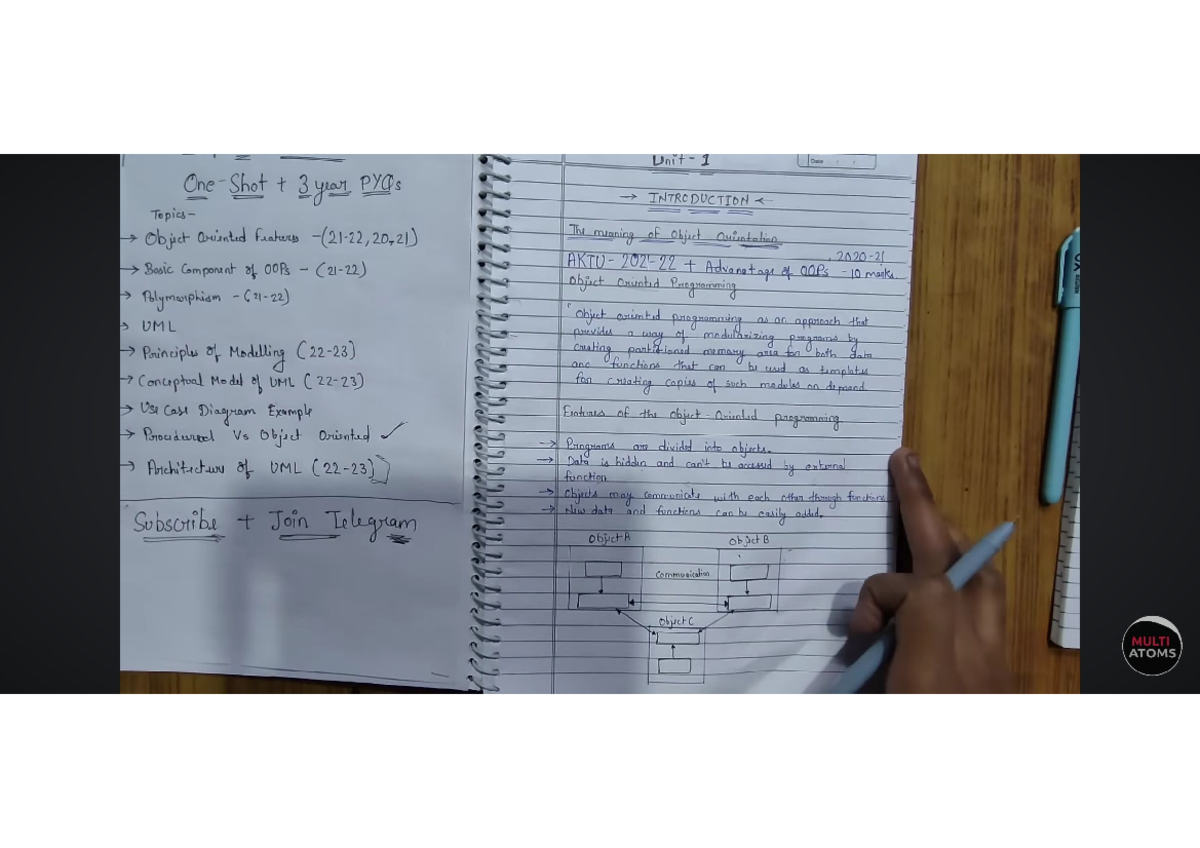 One-Shot + 3 year PYQs
Topics-
→ Object Oriented Features -(21-22, 20-21)
→ Basic Component of OOPs - (21-22)
→ Polymorphism - (21-22)
→ UML
→ Principles of Modelling (22-23)
→ Conceptual Model of UML (22-23)
→ Use Case Diagram Example
→ Procedural Vs Object Oriented ✓
→ Architecture of UML (22-23)
Subscribe + Join Telegram
Unit - 1
Date
→ INTRODUCTION ←
The meaning of Object Orientation
2020-21
AKTU- 2021-22 + Advanatage of OOPs - 10 marks.
Object Oriented Programming
"Object oriented programming as an approach that
provides a way of modularizing programs by
creating partitioned memory area for both data
and functions that can be used as templates
for creating copies of such modules on demand
Features of the Object-Oriented programming
→ Programs are divided into objects.
→ Data is hidden and can't be accessed by external
function
→ Objects may communicate with each other through functions
→ New data and functions can be easily added.
Object A
Object B
Communication
Object C
MULTI
ATOMS